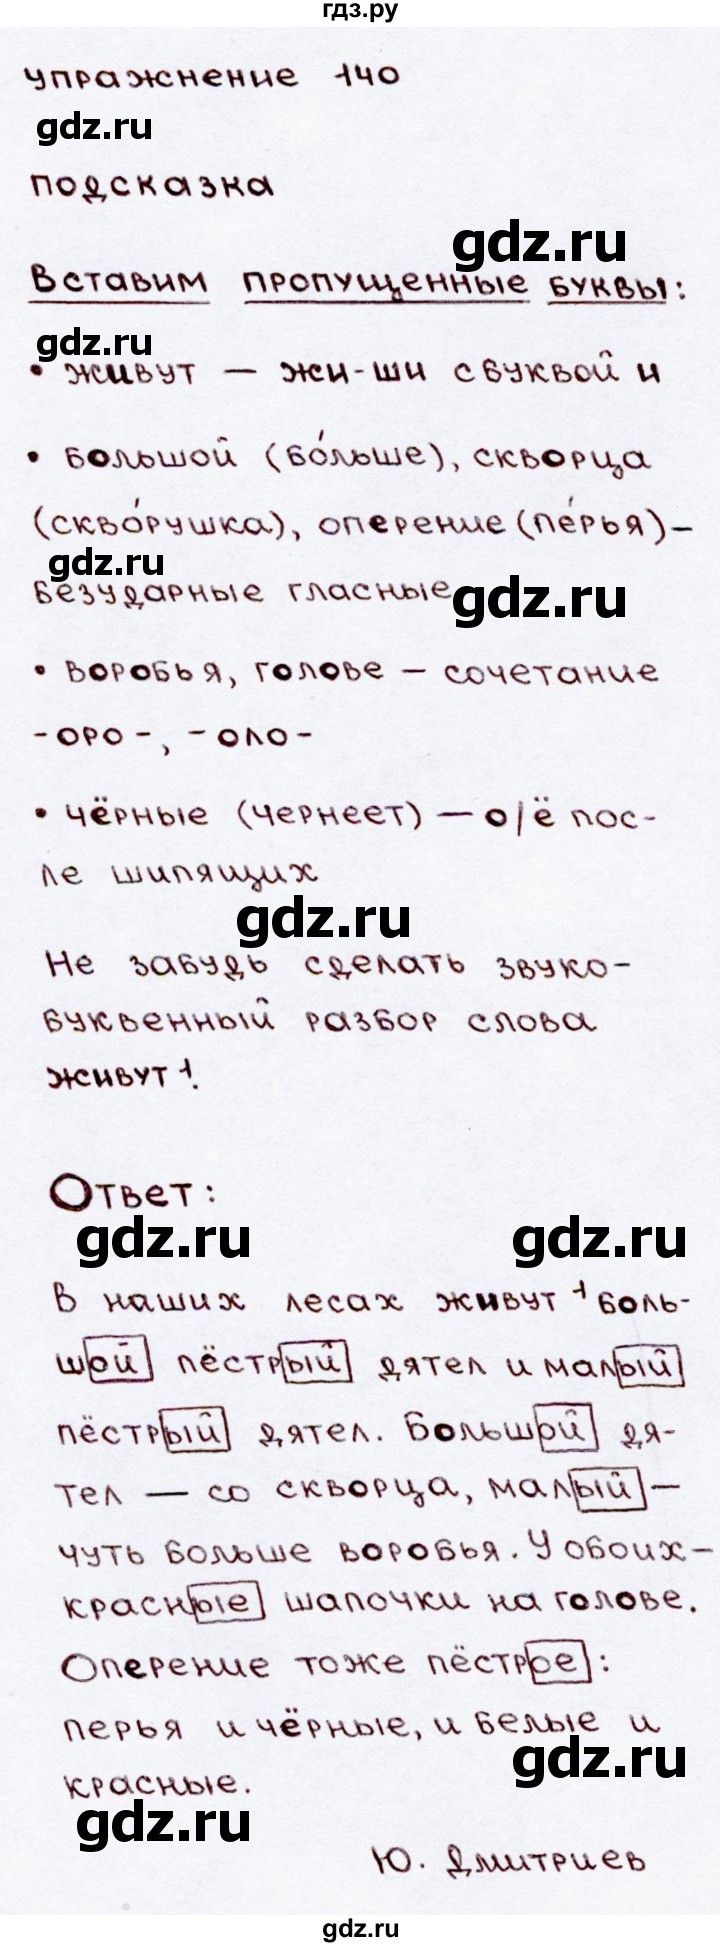 гдз.ру
упражнение 140
gdz.ru
подсказка
gdz.ru
Вставим пропущенные буквы:
gdz.ru
• живут – жи-ши с буквой и
• большой (бо́льше), скворца
(скво́рушка), оперение (пе́рья) –
gdz.ru
безударные гласные
gdz.ru
• воробья, голове – сочетание
-оро-, -оло-
• чёрные (чернеет) – о/ё пос-
ле шипящих
gdz.ru
Не забудь сделать звуко-
буквенный разбор слова
живут¹.
Ответ:
gdz.ru gdz.ru
В наших лесах живут¹ боль-
шой пёстрый дятел и малый
пёстрый дятел. Большой дя-
тел – со скворца, малый –
чуть больше воробья. У обоих –
красные шапочки на голове.
Оперение тоже пёстрое:
перья и чёрные, и белые и
gdz.ru
красные.
gdz.ru
Ю. Дмитриев
gdz.ru